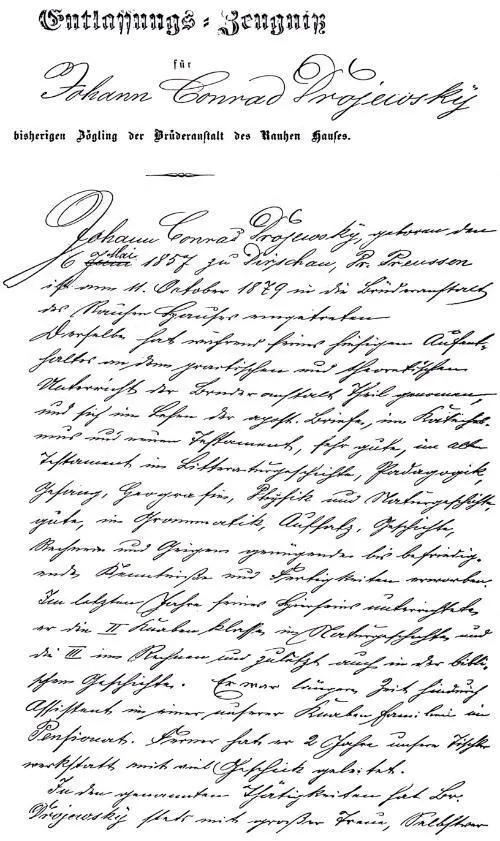 Entlassungs-Zeugniß
für
Johann Conrad Drojewsky
bisherigen Zögling der Brüderanstalt des Rauhen Hauses.
Johann Conrad Drojewsky, geboren den
6 Juni Mai 1857 zu Dirschau, Pr. Preussen
ist am 11. October 1879 in die Brüderanstalt
des Rauhen Hauses eingetreten
Derselbe hat während seines hiesigen Aufent-
haltes an dem practischen und theoretischen
Unterricht der Brüderanstalt Theil genommen,
und sich im Lesen der apost. Briefe, im Katechis-
mus und neuen Testament, sehr gute, im alten
Testament im Litteraturgeschichte, Pädagogik,
Gesang, Geografie, Physik und Naturgeschichte,
gute, in Grammatik, Aufsatz, Geschichte,
Rechnen und Geigen genügende bis befriedig-
ende Kenntniße und Fertigkeiten erworben.
Im letzten Jahre seines Hierseins unterrichtete
er die II Knaben klasse, in Naturgeschichte und
die III im Rechnen und zuletzt auch in der bibli-
schen Geschichte. Er war längere Zeit hindurch
Assistent in einer unserer Knaben familien im
Pensionat. Ferner hat er 2 Jahre unsere Tischler
werkstatt mit viel Geschick geleitet.
In den genannten Thätigkeiten hat Br.
Drojewsky stets mit großer Treue, Selbstver